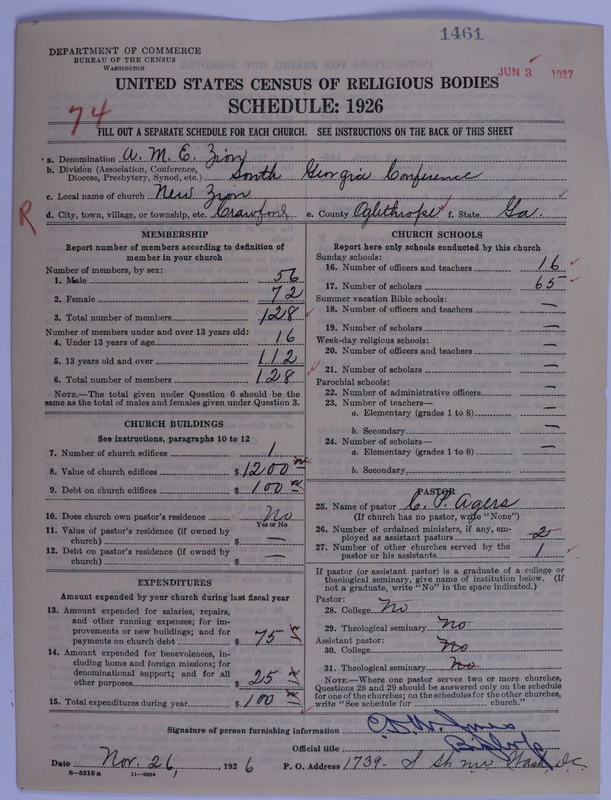 1461
DEPARTMENT OF COMMERCE
BUREAU OF THE CENSUS
WASHINGTON
JUN 3 1927
UNITED STATES CENSUS OF RELIGIOUS BODIES
SCHEDULE: 1926
74
FILL OUT A SEPARATE SCHEDULE FOR EACH CHURCH. SEE INSTRUCTIONS ON THE BACK OF THIS SHEET
a. Denomination A. M. E. Zion
b. Division (Association, Conference, Diocese, Presbytery, Synod, etc.) South Georgia Conference
c. Local name of church New Zion
R
d. City, town, village, or township, etc. Crawford e. County Oglethrope f. State Ga.
MEMBERSHIP
Report number of members according to definition of member in your church
Number of members, by sex:
1. Male 56
2. Female 72
3. Total number of members 128
Number of members under and over 13 years old:
4. Under 13 years of age 16
5. 13 years old and over 112
6. Total number of members 128
NOTE.—The total given under Question 6 should be the same as the total of males and females given under Question 3.
CHURCH BUILDINGS
See instructions, paragraphs 10 to 12
7. Number of church edifices 1
8. Value of church edifices $ 1200
9. Debt on church edifices $ 100
10. Does church own pastor's residence No
Yes or No
11. Value of pastor's residence (if owned by church) $ —
12. Debt on pastor's residence (if owned by church) $ —
EXPENDITURES
Amount expended by your church during last fiscal year
13. Amount expended for salaries, repairs, and other running expenses; for improvements or new buildings; and for payments on church debt $ 75
14. Amount expended for benevolences, including home and foreign missions; for denominational support; and for all other purposes $ 25
15. Total expenditures during year $ 100
CHURCH SCHOOLS
Report here only schools conducted by this church
Sunday schools:
16. Number of officers and teachers 16
17. Number of scholars 65
Summer vacation Bible schools:
18. Number of officers and teachers —
19. Number of scholars —
Week-day religious schools:
20. Number of officers and teachers —
21. Number of scholars —
Parochial schools:
22. Number of administrative officers —
23. Number of teachers—
a. Elementary (grades 1 to 8) —
b. Secondary —
24. Number of scholars—
a. Elementary (grades 1 to 8) —
b. Secondary
PASTOR
25. Name of pastor C. P. Agers
(If church has no pastor, write "None")
26. Number of ordained ministers, if any, employed as assistant pastors 2
27. Number of other churches served by the pastor or his assistants 1
If pastor (or assistant pastor) is a graduate of a college or theological seminary, give name of institution below. (If not a graduate, write "No" in the space indicated.)
Pastor:
28. College No
29. Theological seminary No
Assistant pastor:
30. College No
31. Theological seminary No
NOTE.—Where one pastor serves two or more churches, Questions 28 and 29 should be answered only on the schedule for one of the churches; on the schedules for the other churches, write "See schedule for church."
Signature of person furnishing information
Official title Bishop
Date Nov. 26, 1926 P. O. Address 1739- S St nw Wash D.C.
8—5518 a 11—9634